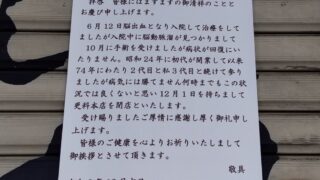 拝啓 皆様にはますますの御清祥のことと
お慶び申し上げます。
6月12日脳出血となり入院して治療をして
ましたが入院中に脳動脈溜が見つかりまして
10月に手術を受けましたが病状が回復にい
たりません。昭和24年に初代が開業して以来
74年にわたり2代目と私3代目と続けて参り
ましたが病気には勝てません何時までもこの状
況では良くないと思い12月1日を持ちまして
更科本店を閉店といたします。
受け賜りましたご厚情に感謝し厚く御礼申し
上げます。
皆様のご健康を心よりお祈りいたしまして
御挨拶とさせて頂きます。
敬具